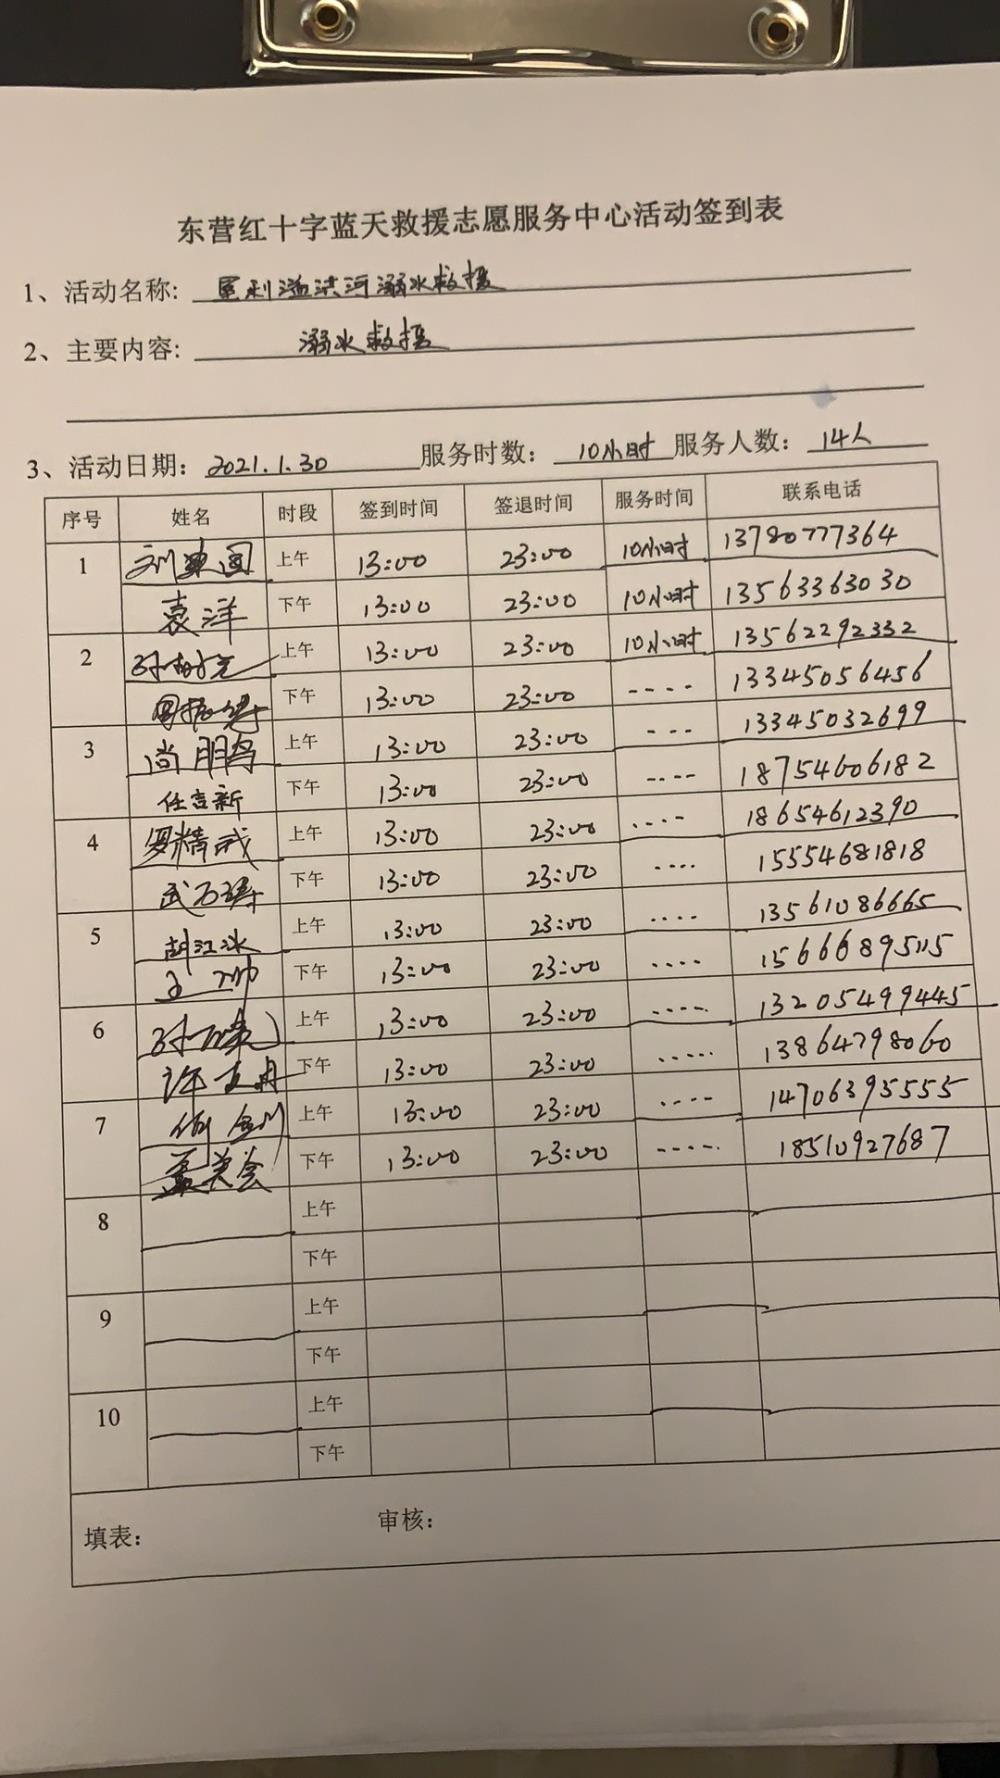 东营红十字蓝天救援志愿服务中心活动签到表
1、活动名称: 垦利溢洪河溺水救援
2、主要内容: 溺水救援
3、活动日期: 2021.1.30 服务时数: 10小时 服务人数: 14人
序号 姓名 时段 签到时间 签退时间 服务时间 联系电话
1 上午 13:00 23:00 10小时 13780777364
袁洋 下午 13:00 23:00 10小时 13563363030
2 上午 13:00 23:00 10小时 13562292332
下午 13:00 23:00 ---- 13345056456
3 尚朋鸟 上午 13:00 23:00 --- 13345032699
任吉新 下午 13:00 23:00 ---- 18754606182
4 上午 13:00 23:00 .... 18654612390
下午 13:00 23:00 .... 15554681818
5 胡江冰 上午 13:00 23:00 .... 13561086665
下午 13:00 23:00 .... 15666895115
6 上午 13:00 23:00 .... 13205499445
下午 13:00 23:00 ..... 13864798060
7 上午 13:00 23:00 .... 14706395555
孟美会 下午 13:00 23:00 ..... 18510927687
8 上午
下午
9 上午
下午
10 上午
下午
填表: 审核: